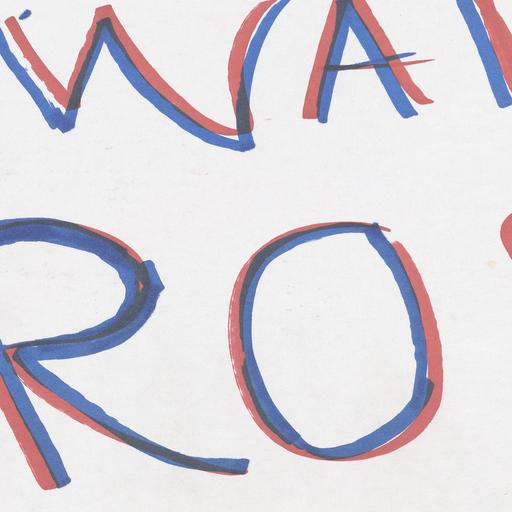 WA
RO